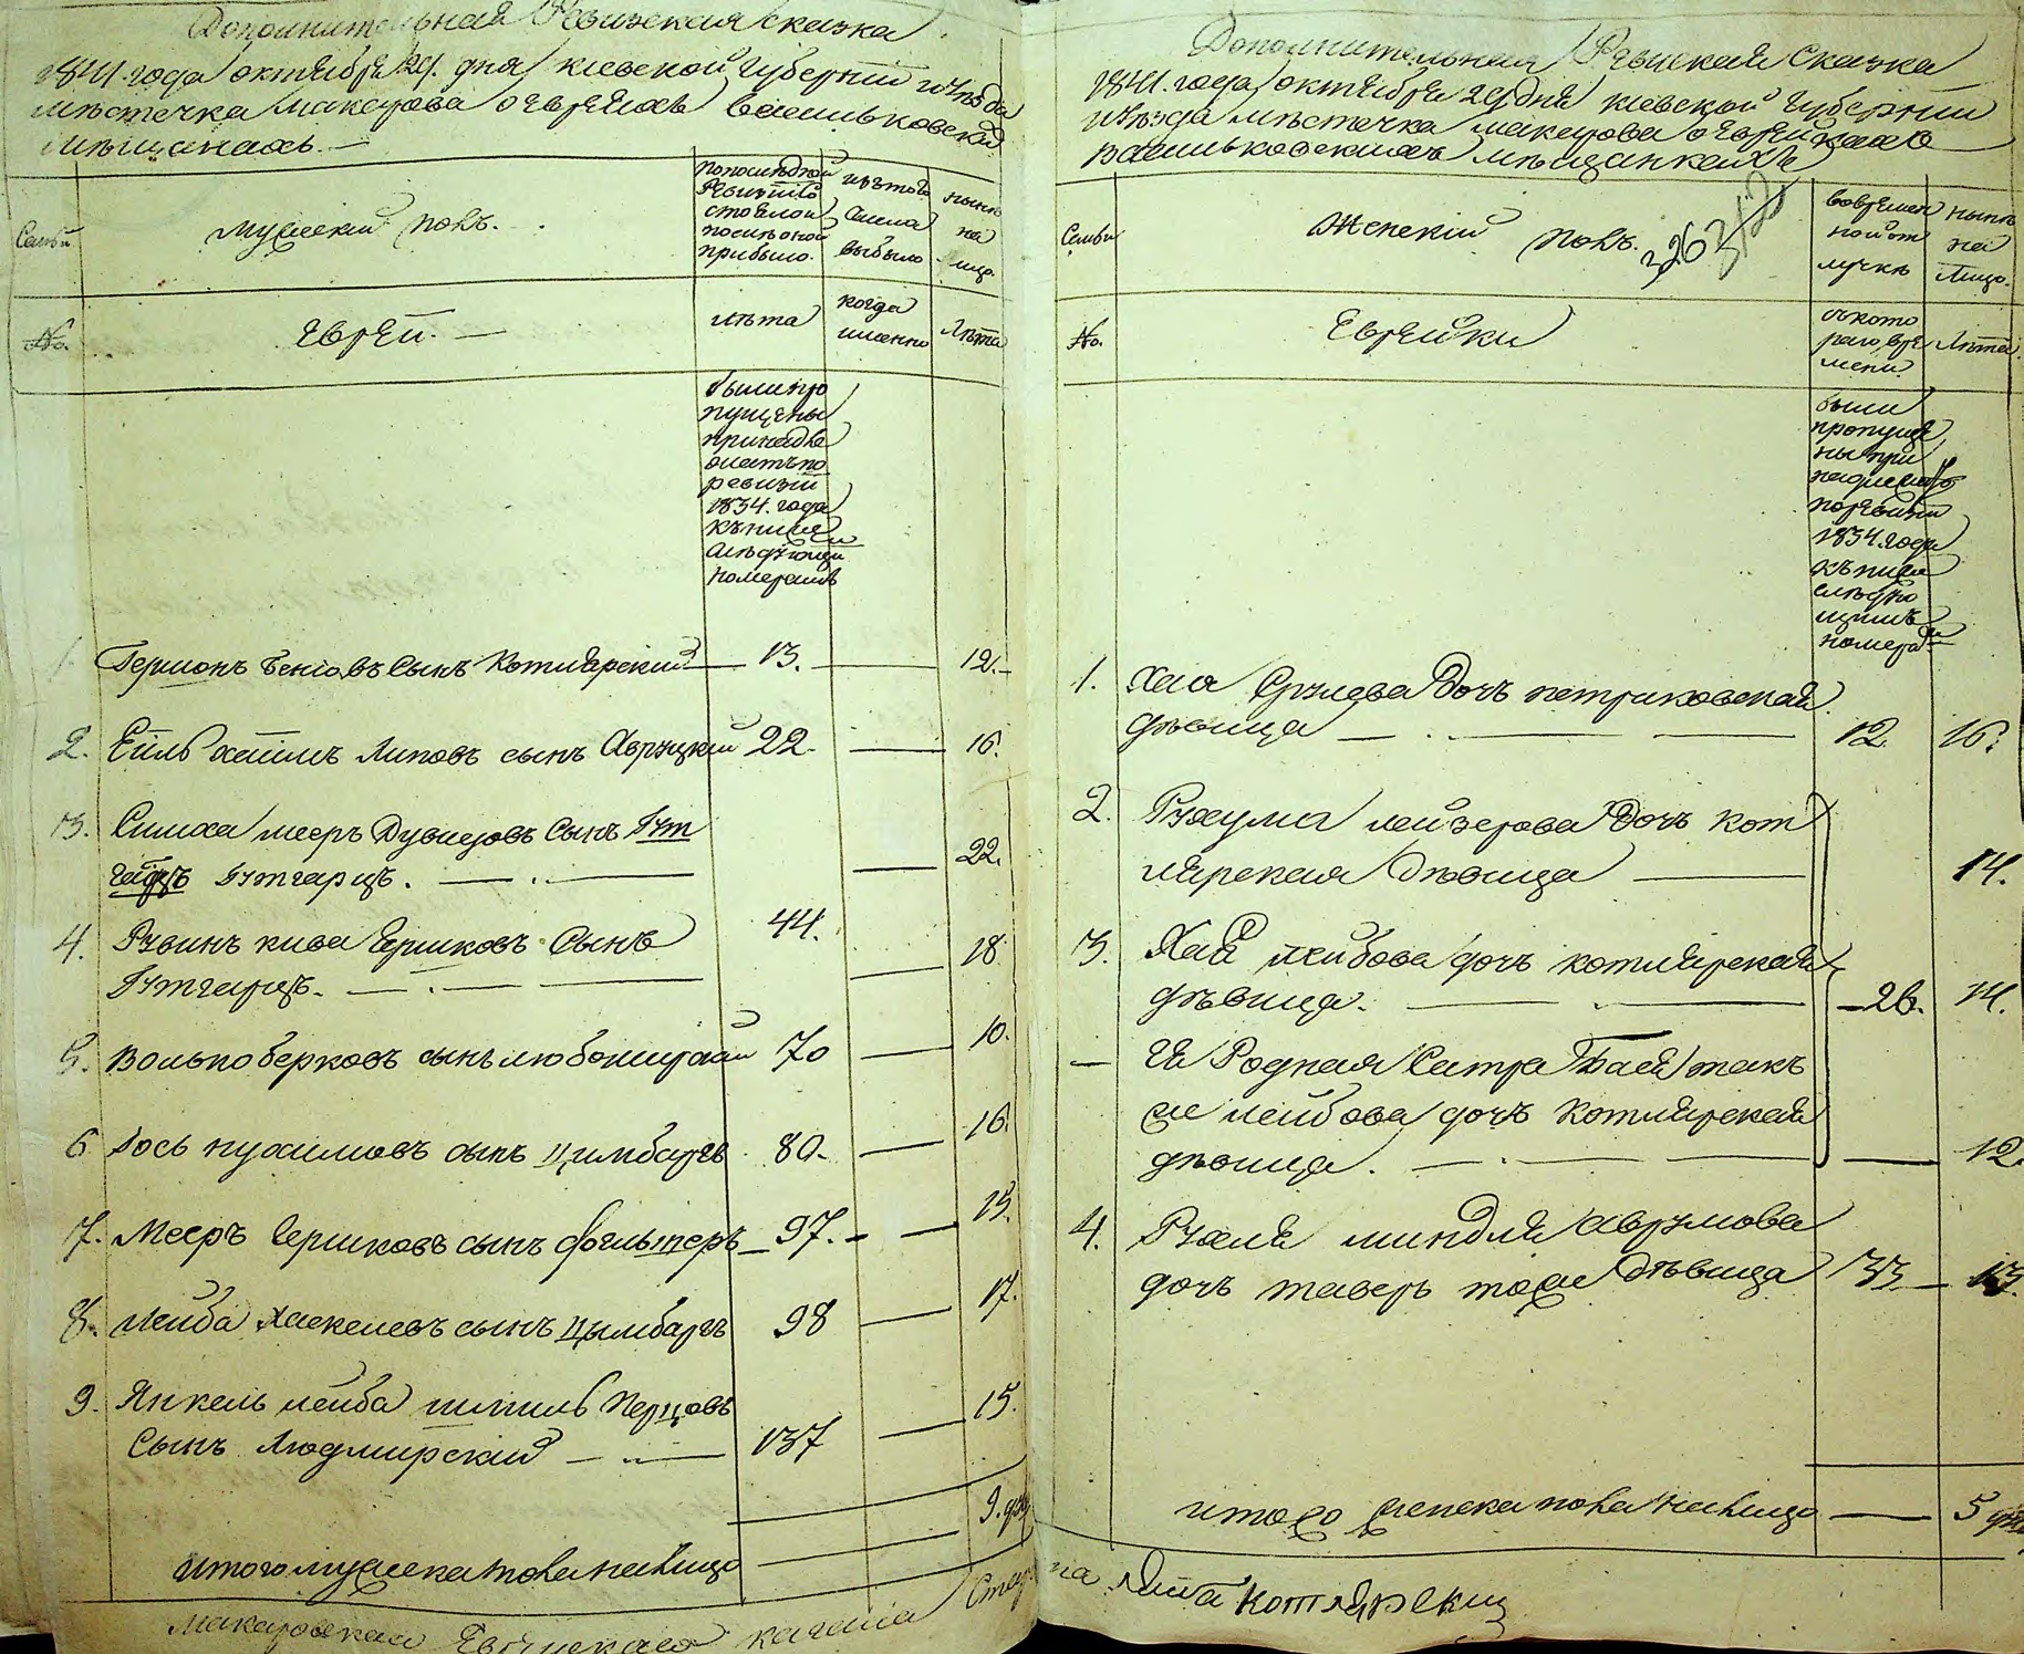 Дополнительная Ревизская сказка
1841. года октября 29. дня кіевской губерніи и уѣзда
мѣстечка макарова о евреяхъ васильковскихъ
мѣщанахъ.
Семьи
мужескій полъ.
По послѣдней
Ревизіи
состояло и
послѣ оной
прибыло.
изъ того
числа
выбыло
нынѣ
на
лицо.
№.
евреи.
лѣта
когда
именно
лѣта
были про
пущены
принадле
жатъ по
ревизіи
1834. года
къ нижеи
слѣдующи
номерамъ
1. Гершонъ Беніовъ Сынъ Котлярский 13. 12.
2. Еиль хаимъ Липовъ сынъ Авруцкий 22. 16.
3. Симха мееръ Дувидовъ Сынъ Гут
гарцъ Гутгарцъ. 22.
4. Рувинъ кива Ершковъ Сынъ 44. 18
Гутгарцъ.
5. Волько берковъ сынъ любошицкий 70 10.
6 Іось нухимовъ сынъ Цимбаръ 80. 16.
7. Мееръ Гершковъ сынъ фогльтеръ 97. 15.
8. Лейба Хаскелевъ сынъ Цымбаръ 98 17.
9. Янкель лейба шмиль Перцовъ 15.
Сынъ Людмирский 137
9. душ
итого мужеска пола на лицо
Макаровскаго Еврейскаго кагала Старо
Дополнительная Ревизская Сказка
1841. года октября 29 дня кіевской губерніи
и уѣзда мѣстечка макарова о еврейкахъ
васильковскихъ мѣщанкахъ
Семьи
Женскій полъ.
во времен
ной от
лучкѣ
нынѣ
на
Лицо.
№.
Еврейки
съ кото
раго вре
мени
Лѣта
были
пропуще
ны при
надлежатъ
по ревизіи
1834 года
къ ниже
слѣдую
щимъ
номерамъ
1. Хая Срулева Дочь петриковская
дѣвица 12. 16.
2. Рухума лейзерова Дочь кот
лярская дѣвица 14.
3. Хая лейбова дочь котлярская
дѣвица. 26. 14.
— Ея Родная Сестра Бася так
же лейбова дочь Котлярская
дѣвица. 12.
4. Рухля миндля Аврумова
дочь таверъ тоже дѣвица 33 13.
итого женска пола на лицо 5 душ
па лейба котлярский